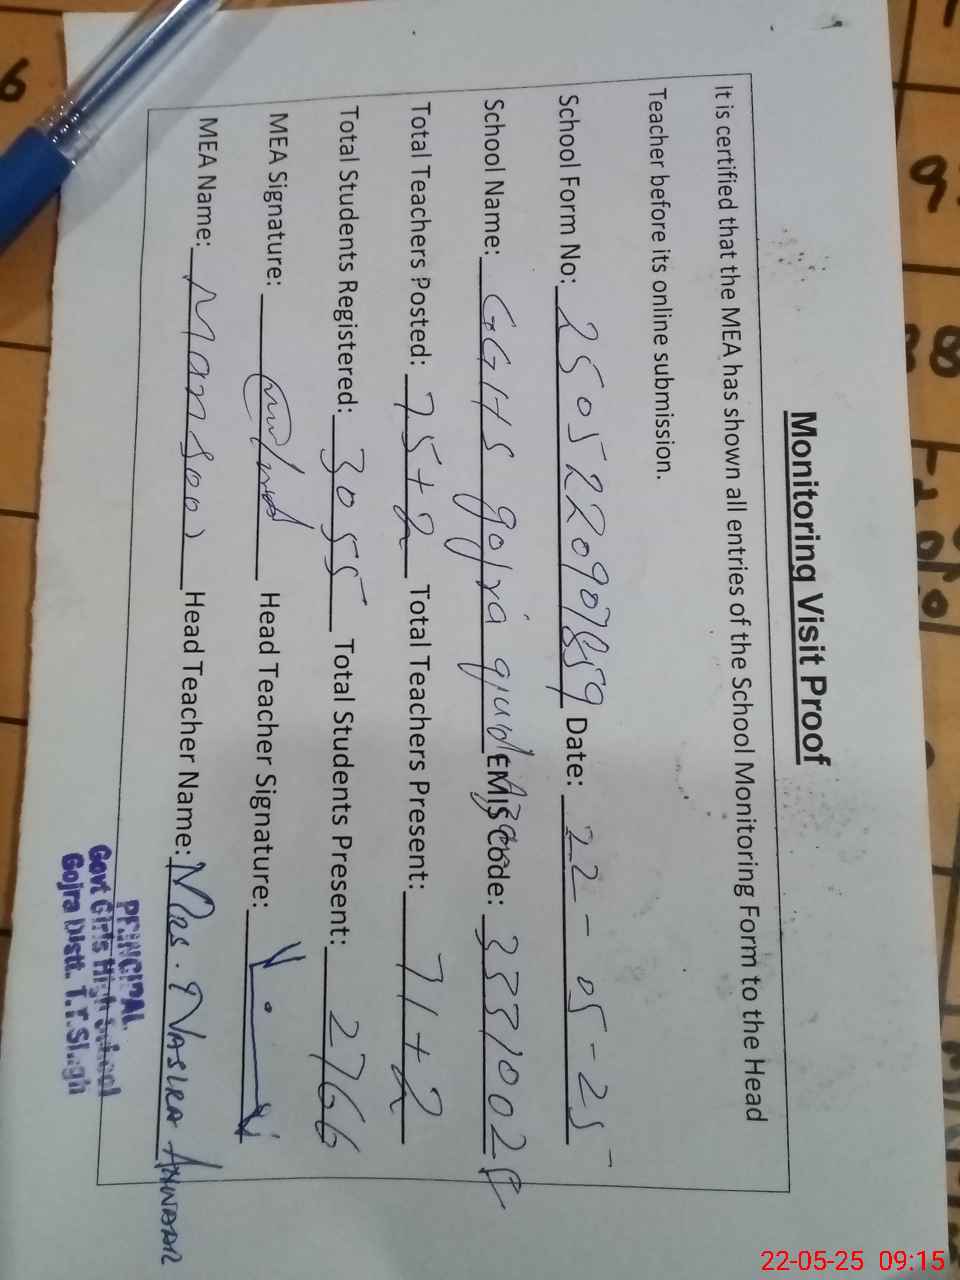 Monitoring Visit Proof
It is certified that the MEA has shown all entries of the School Monitoring Form to the Head
Teacher before its online submission.
School Form No: 2505220907859 Date: 22-05-25
School Name: GGHS gojra EMIS Code: 3331002
Total Teachers Posted: 75+2 Total Teachers Present: 71+2
Total Students Registered: 3055 Total Students Present: 2766
MEA Signature: Head Teacher Signature:
MEA Name: Mansoor Head Teacher Name: Mrs. Nasira Anwar
PRINCIPAL
Govt Girls High School
Gojra Distt. T.T.Singh
22-05-25 09:15